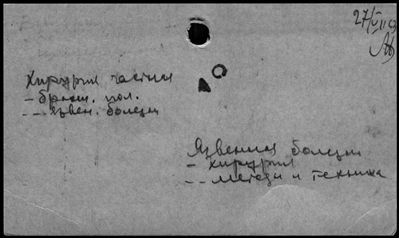 27/V
Хирургия частная
- брюш. пол.
-- язвен. болезни
Язвенная болезнь
- хирургия
-- методы и техника